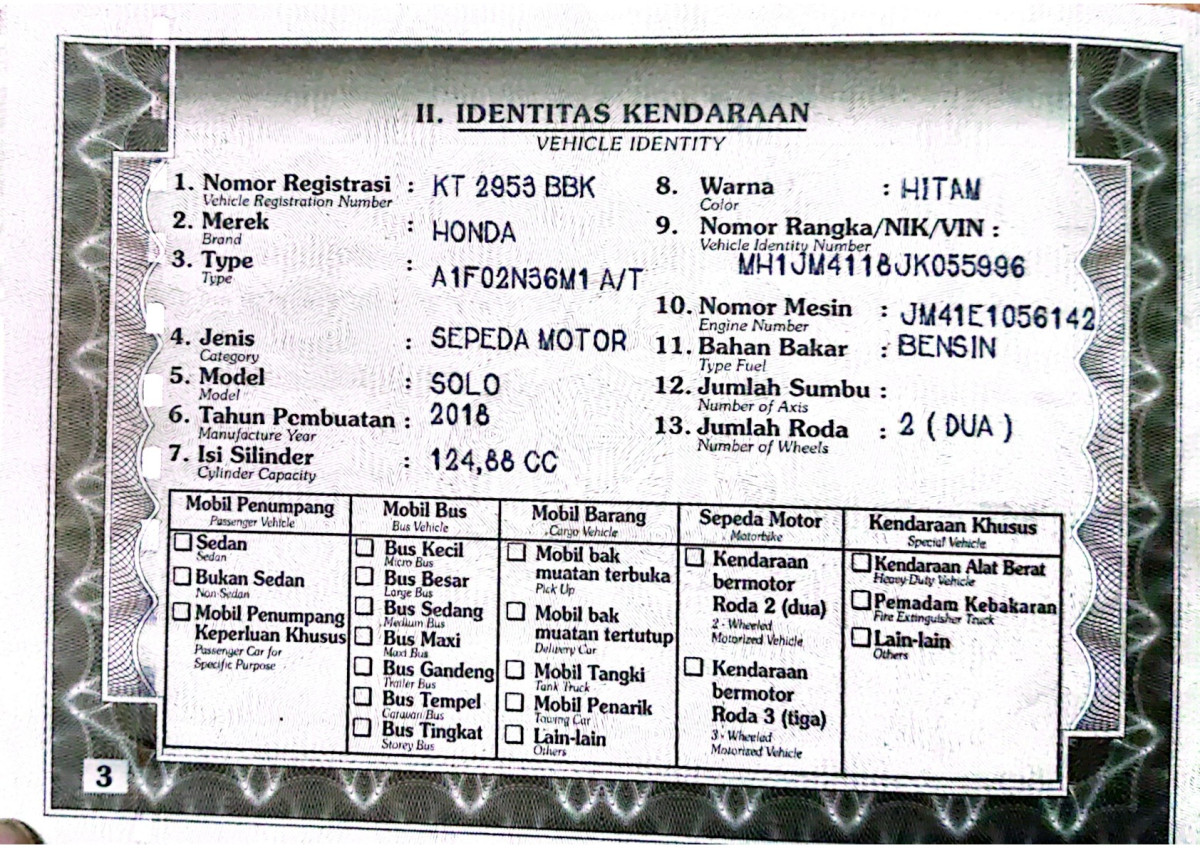 II. IDENTITAS KENDARAAN
VEHICLE IDENTITY
1. Nomor Registrasi : KT 2953 BBK
Vehicle Registration Number
2. Merek : HONDA
Brand
3. Type : A1F02N36M1 A/T
Type
4. Jenis : SEPEDA MOTOR
Category
5. Model : SOLO
Model
6. Tahun Pembuatan : 2018
Manufacture Year
7. Isi Silinder : 124,88 CC
Cylinder Capacity
8. Warna : HITAM
Color
9. Nomor Rangka/NIK/VIN :
Vehicle Identity Number
MH1JM4118JK055996
10. Nomor Mesin : JM41E1056142
Engine Number
11. Bahan Bakar : BENSIN
Type Fuel
12. Jumlah Sumbu :
Number of Axis
13. Jumlah Roda : 2 ( DUA )
Number of Wheels
Mobil Penumpang
Passenger Vehicle
Sedan
Sedan
Bukan Sedan
Non-Sedan
Mobil Penumpang
Keperluan Khusus
Passenger Car for
Specific Purpose
Mobil Bus
Bus Vehicle
Bus Kecil
Micro Bus
Bus Besar
Large Bus
Bus Sedang
Medium Bus
Bus Maxi
Maxi Bus
Bus Gandeng
Trailer Bus
Bus Tempel
Caravan Bus
Bus Tingkat
Storey Bus
Mobil Barang
Cargo Vehicle
Mobil bak
muatan terbuka
Pick Up
Mobil bak
muatan tertutup
Delivery Car
Mobil Tangki
Tank Truck
Mobil Penarik
Towing Car
Lain-lain
Others
Sepeda Motor
Motorbike
Kendaraan
bermotor
Roda 2 (dua)
2 - Wheeled
Motorized Vehicle
Kendaraan
bermotor
Roda 3 (tiga)
3 - Wheeled
Motorized Vehicle
Kendaraan Khusus
Special Vehicle
Kendaraan Alat Berat
Heavy-Duty Vehicle
Pemadam Kebakaran
Fire Extinguisher Truck
Lain-lain
Others
3